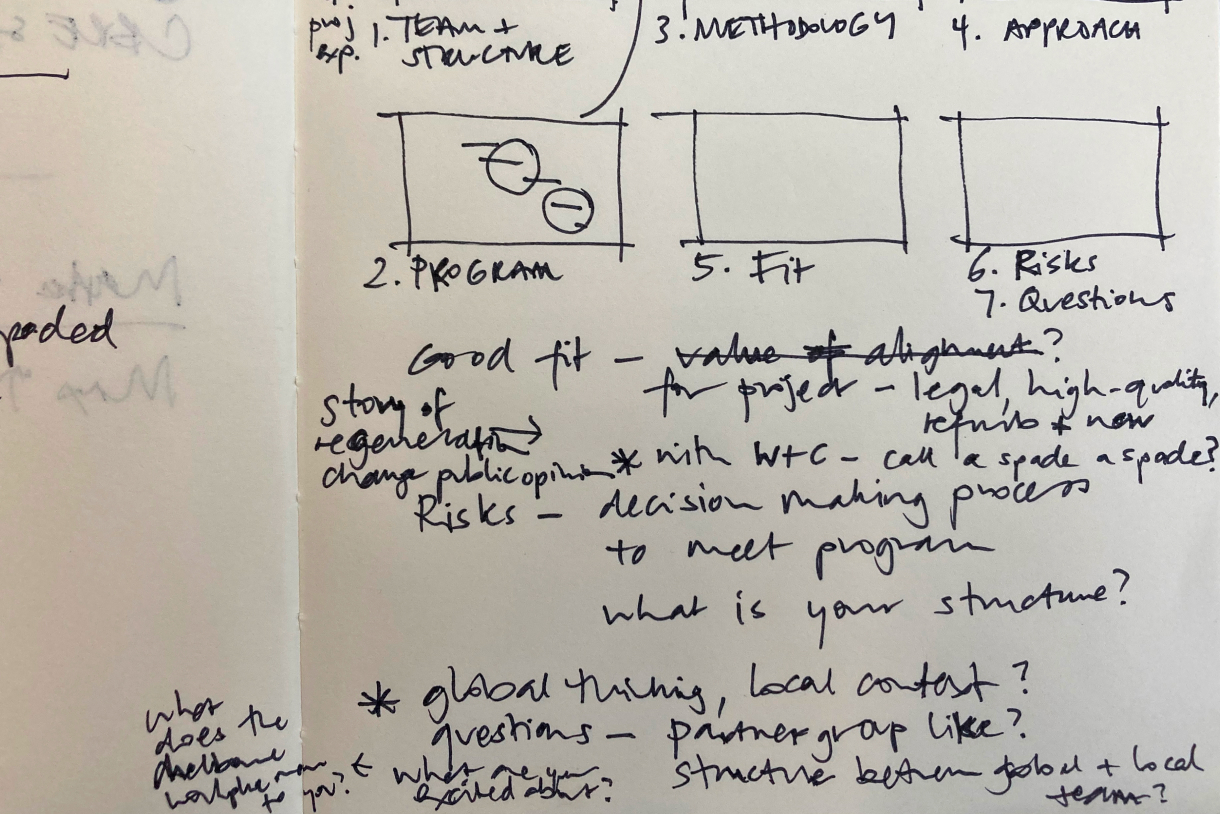 proj
exp.
1. TEAM +
STRUCTURE
3. METHODOLOGY
4. APPROACH
2. PROGRAM
5. Fit
6. Risks
7. Questions
Good fit – value of alignment?
for project – legal, high-quality,
refurb + new
story of
regeneration →
change public opinion
* with W+C – call a spade a spade?
Risks – decision making process
to meet program
what is your structure?
* global thinking, local context?
questions – partner group like?
what are you
excited about?
structure between global + local
team?
what
does the
melbourne
workplace mean
to you? ←